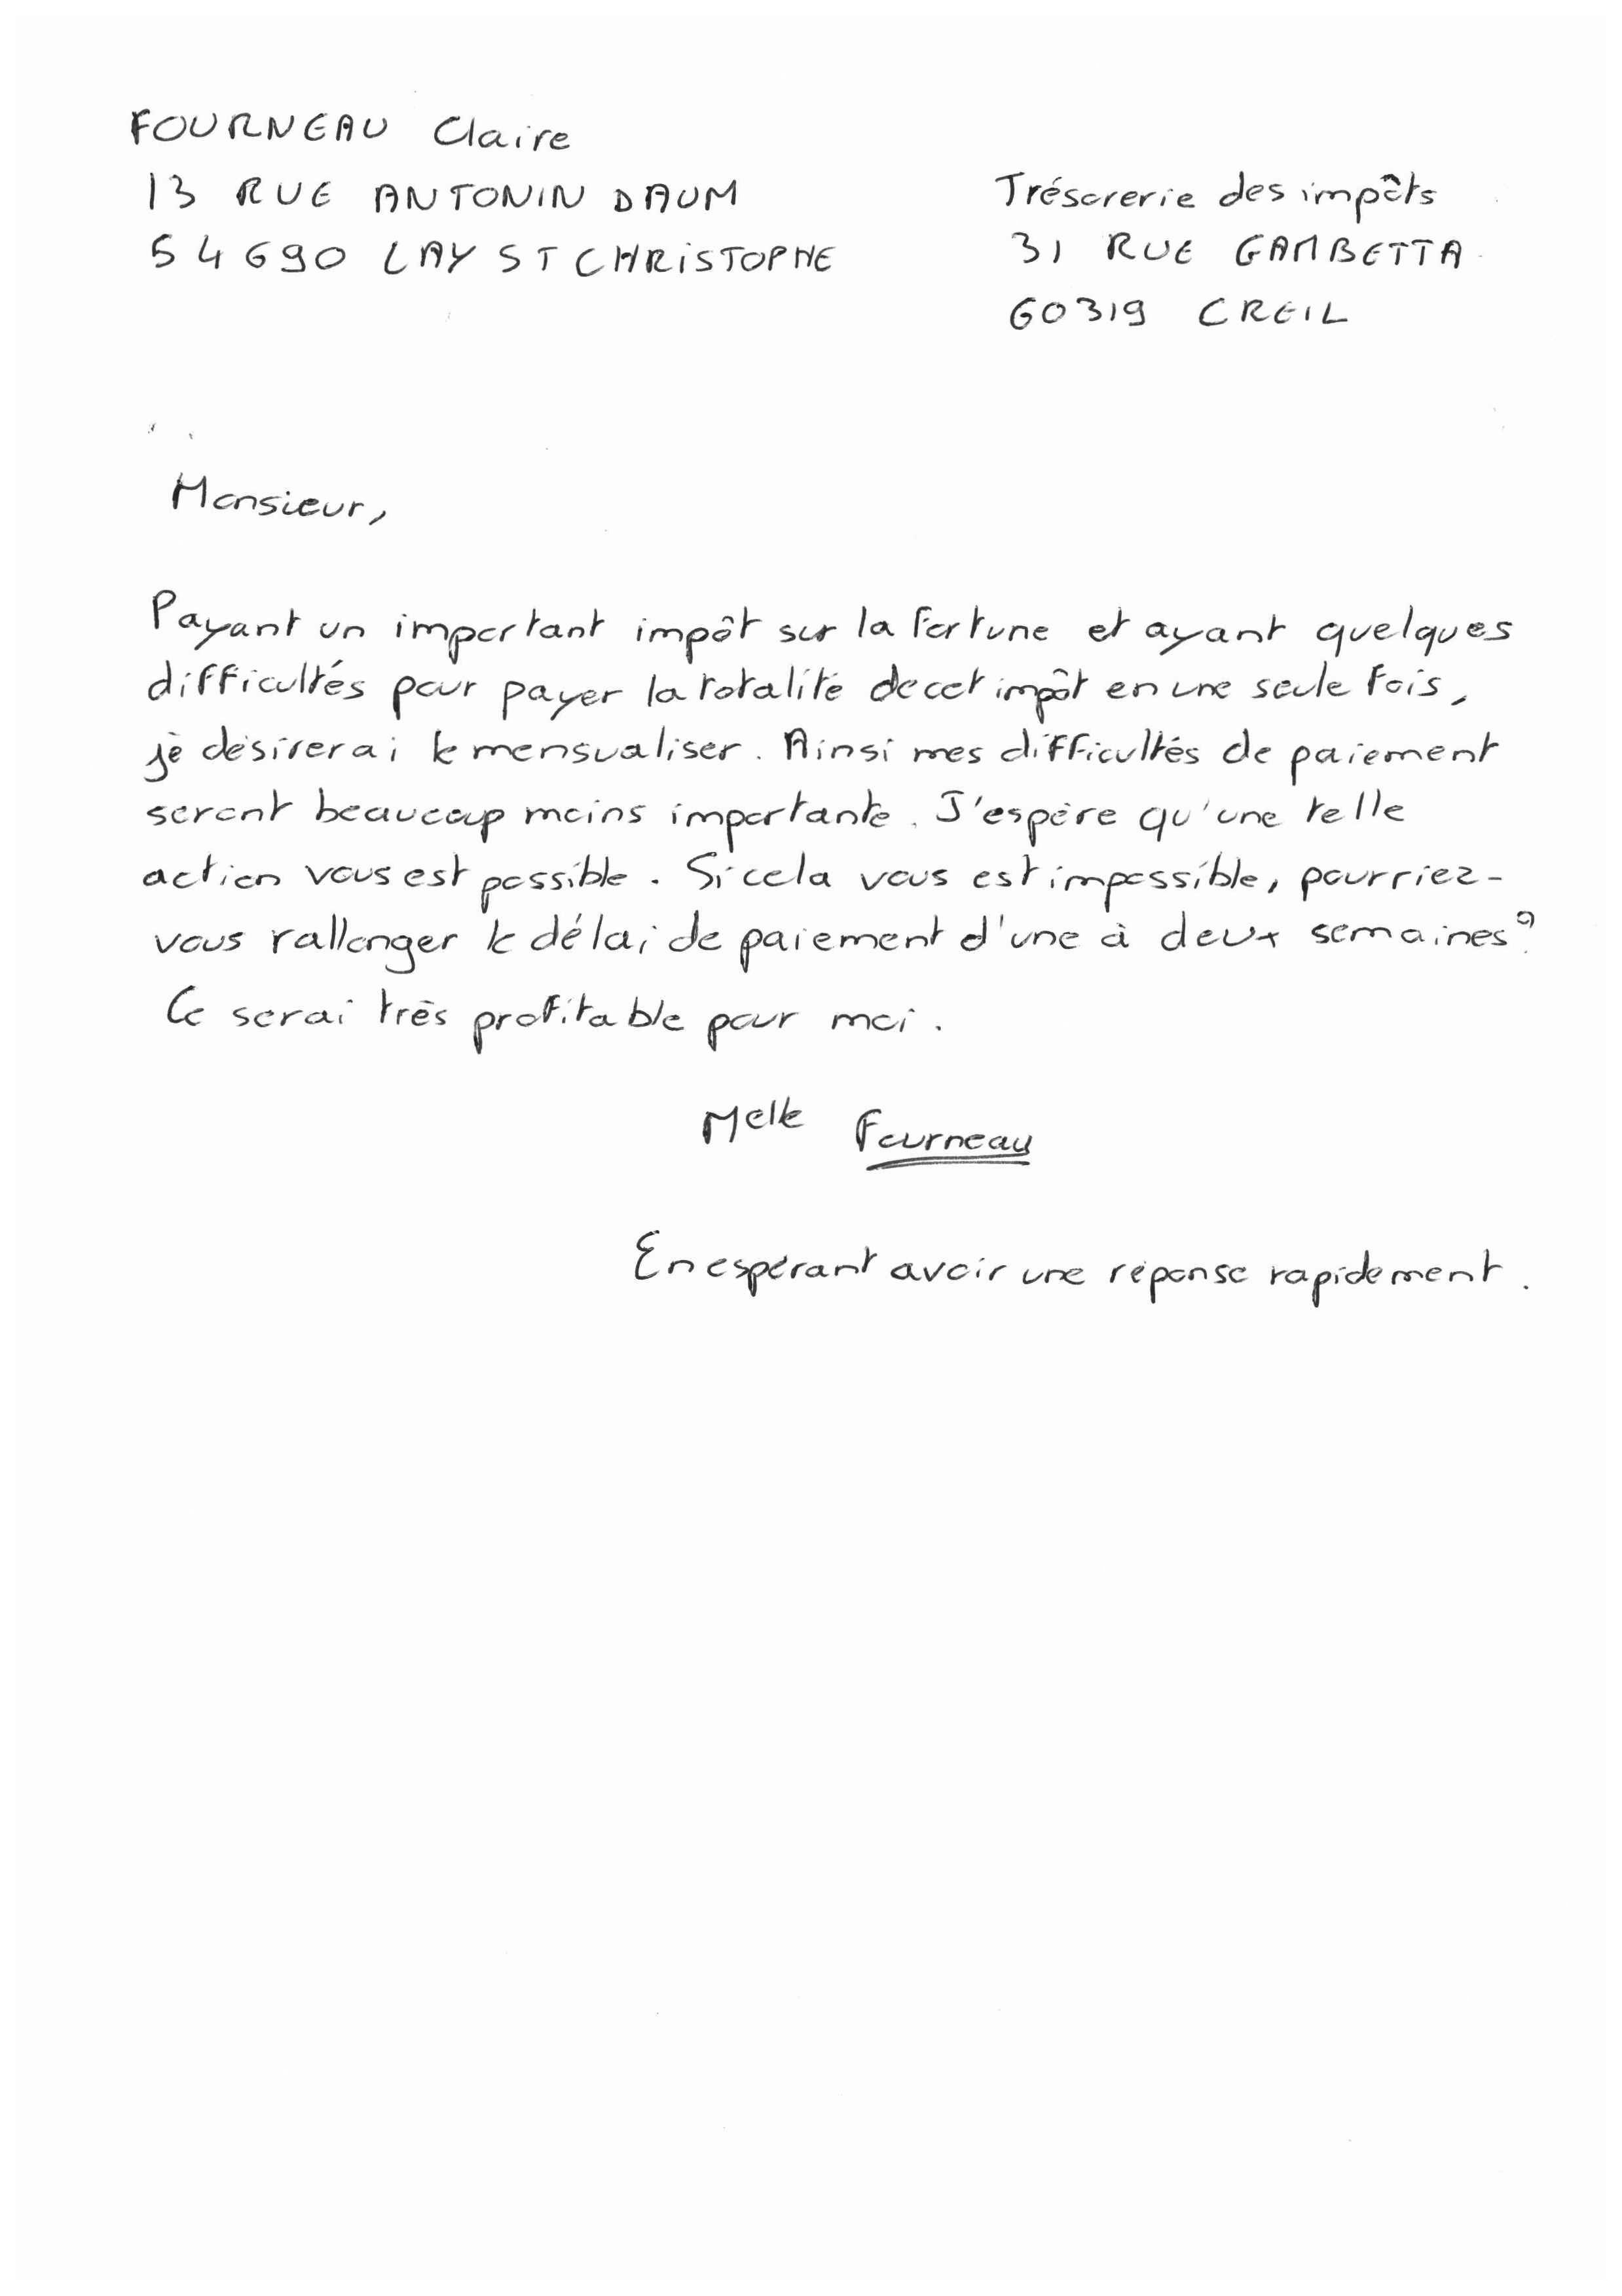 FOURNEAU Claire
13 RUE ANTONIN DAUM
54690 LAY ST CHRISTOPHE
Trésorerie des impôts
31 RUE GAMBETTA
60319 CREIL
Monsieur,
Payant un important impôt sur la fortune et ayant quelques
difficultés pour payer la totalité de cet impôt en une seule fois,
je désirerai le mensualiser. Ainsi mes difficultés de paiement
seront beaucoup moins importante. J'espère qu'une telle
action vous est possible. Si cela vous est impossible, pourriez-
vous rallonger le délai de paiement d'une à deux semaines?
Ce serai très profitable pour moi.
Melle Fourneau
En espérant avoir une réponse rapidement.